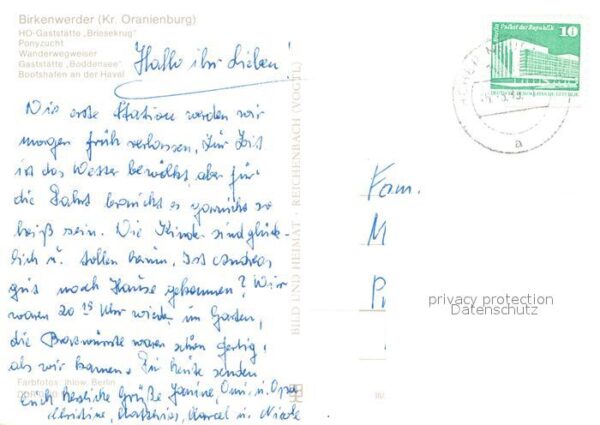 Birkenwerder (Kr. Oranienburg)
HO-Gaststätte „Briesekrug"
Ponyzucht
Wanderwegweiser
Gaststätte „Boddensee"
Bootshafen an der Havel
Hallo ihr Lieben!
Die erste Station werden wir
morgen früh verlassen. Zur Zeit
ist das Wetter bewölkt, aber für
die Fahrt braucht es garnicht so
heiß sein. Die Kinder sind glück-
lich u. tollen herum. Ist Andreas
gut nach Hause gekommen? Wir
waren 20 15 Uhr wieder im Garten,
die Bratwürste waren schon fertig,
als wir kamen. Für heute senden
Euch herzliche Grüße Janine, Omi u. Opa
Christine, Matthias, Marcel u. Nicole
Farbfotos: Ihlow, Berlin
BILD UND HEIMAT · REICHENBACH (VOGTL)
Palast der Republik
10
a
Fam.
M
P
privacy protection
Datenschutz